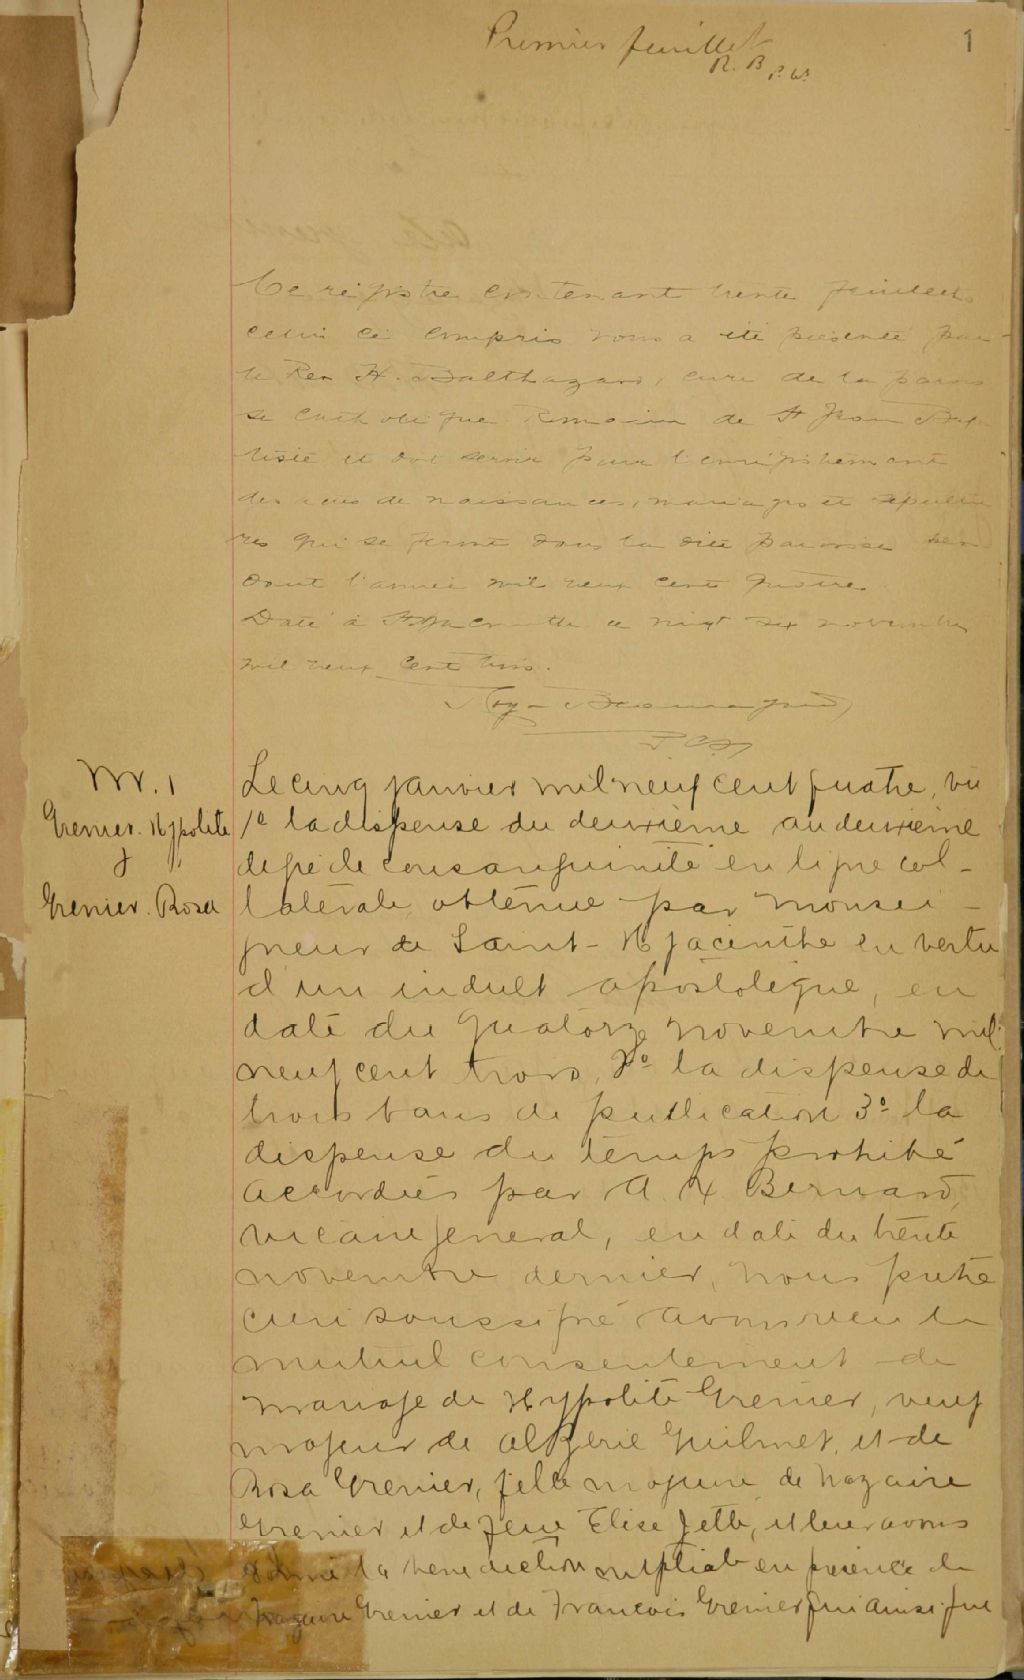 Premier feuillet
1
R. B.
Ce registre contenant trente feuillets
celui ci compris nous a été présenté par
le Rev H. Balthazard, curé de la parois
se catholique Romaine de St Jean Bap
tiste et doit servir pour l'enregistrement
des actes de naissances, mariages et sépultu
res qui se feront dans la dite paroisse pen
dant l'année mil neuf cent quatre.
Daté à St Hyacinthe ce vingt six novembre
mil neuf cent trois.
Roy Beauregard
P C S
M. 1
Grenier. Hypolite
&
Grenier. Rosa
Le cinq janvier mil neuf cent quatre, vu
1º la dispense du deuxième au deuxième
degré de consanguinité en ligne col-
latérale, obtenue par Monsei-
gneur de Saint-Hyacinthe en vertu
d'un indult apostolique, en
date du quatorze novembre mil
neuf cent trois, 2º la dispense de
trois bans de publication 3º la
dispense du temps prohibé
accordées par A. X. Bernard,
vicaire général, en date du trente
novembre dernier, nous prêtre
curé soussigné avons reçu le
mutuel consentement de
mariage de Hypolite Grenier, veuf
majeur de Algérie Guilmet, et de
Rosa Grenier, fille majeure de Nazaire
Grenier et de feue Elise Jetté, et leur avons
donné la bénédiction nuptiale en présence de
Nazaire Grenier et de François Grenier qui ainsi que